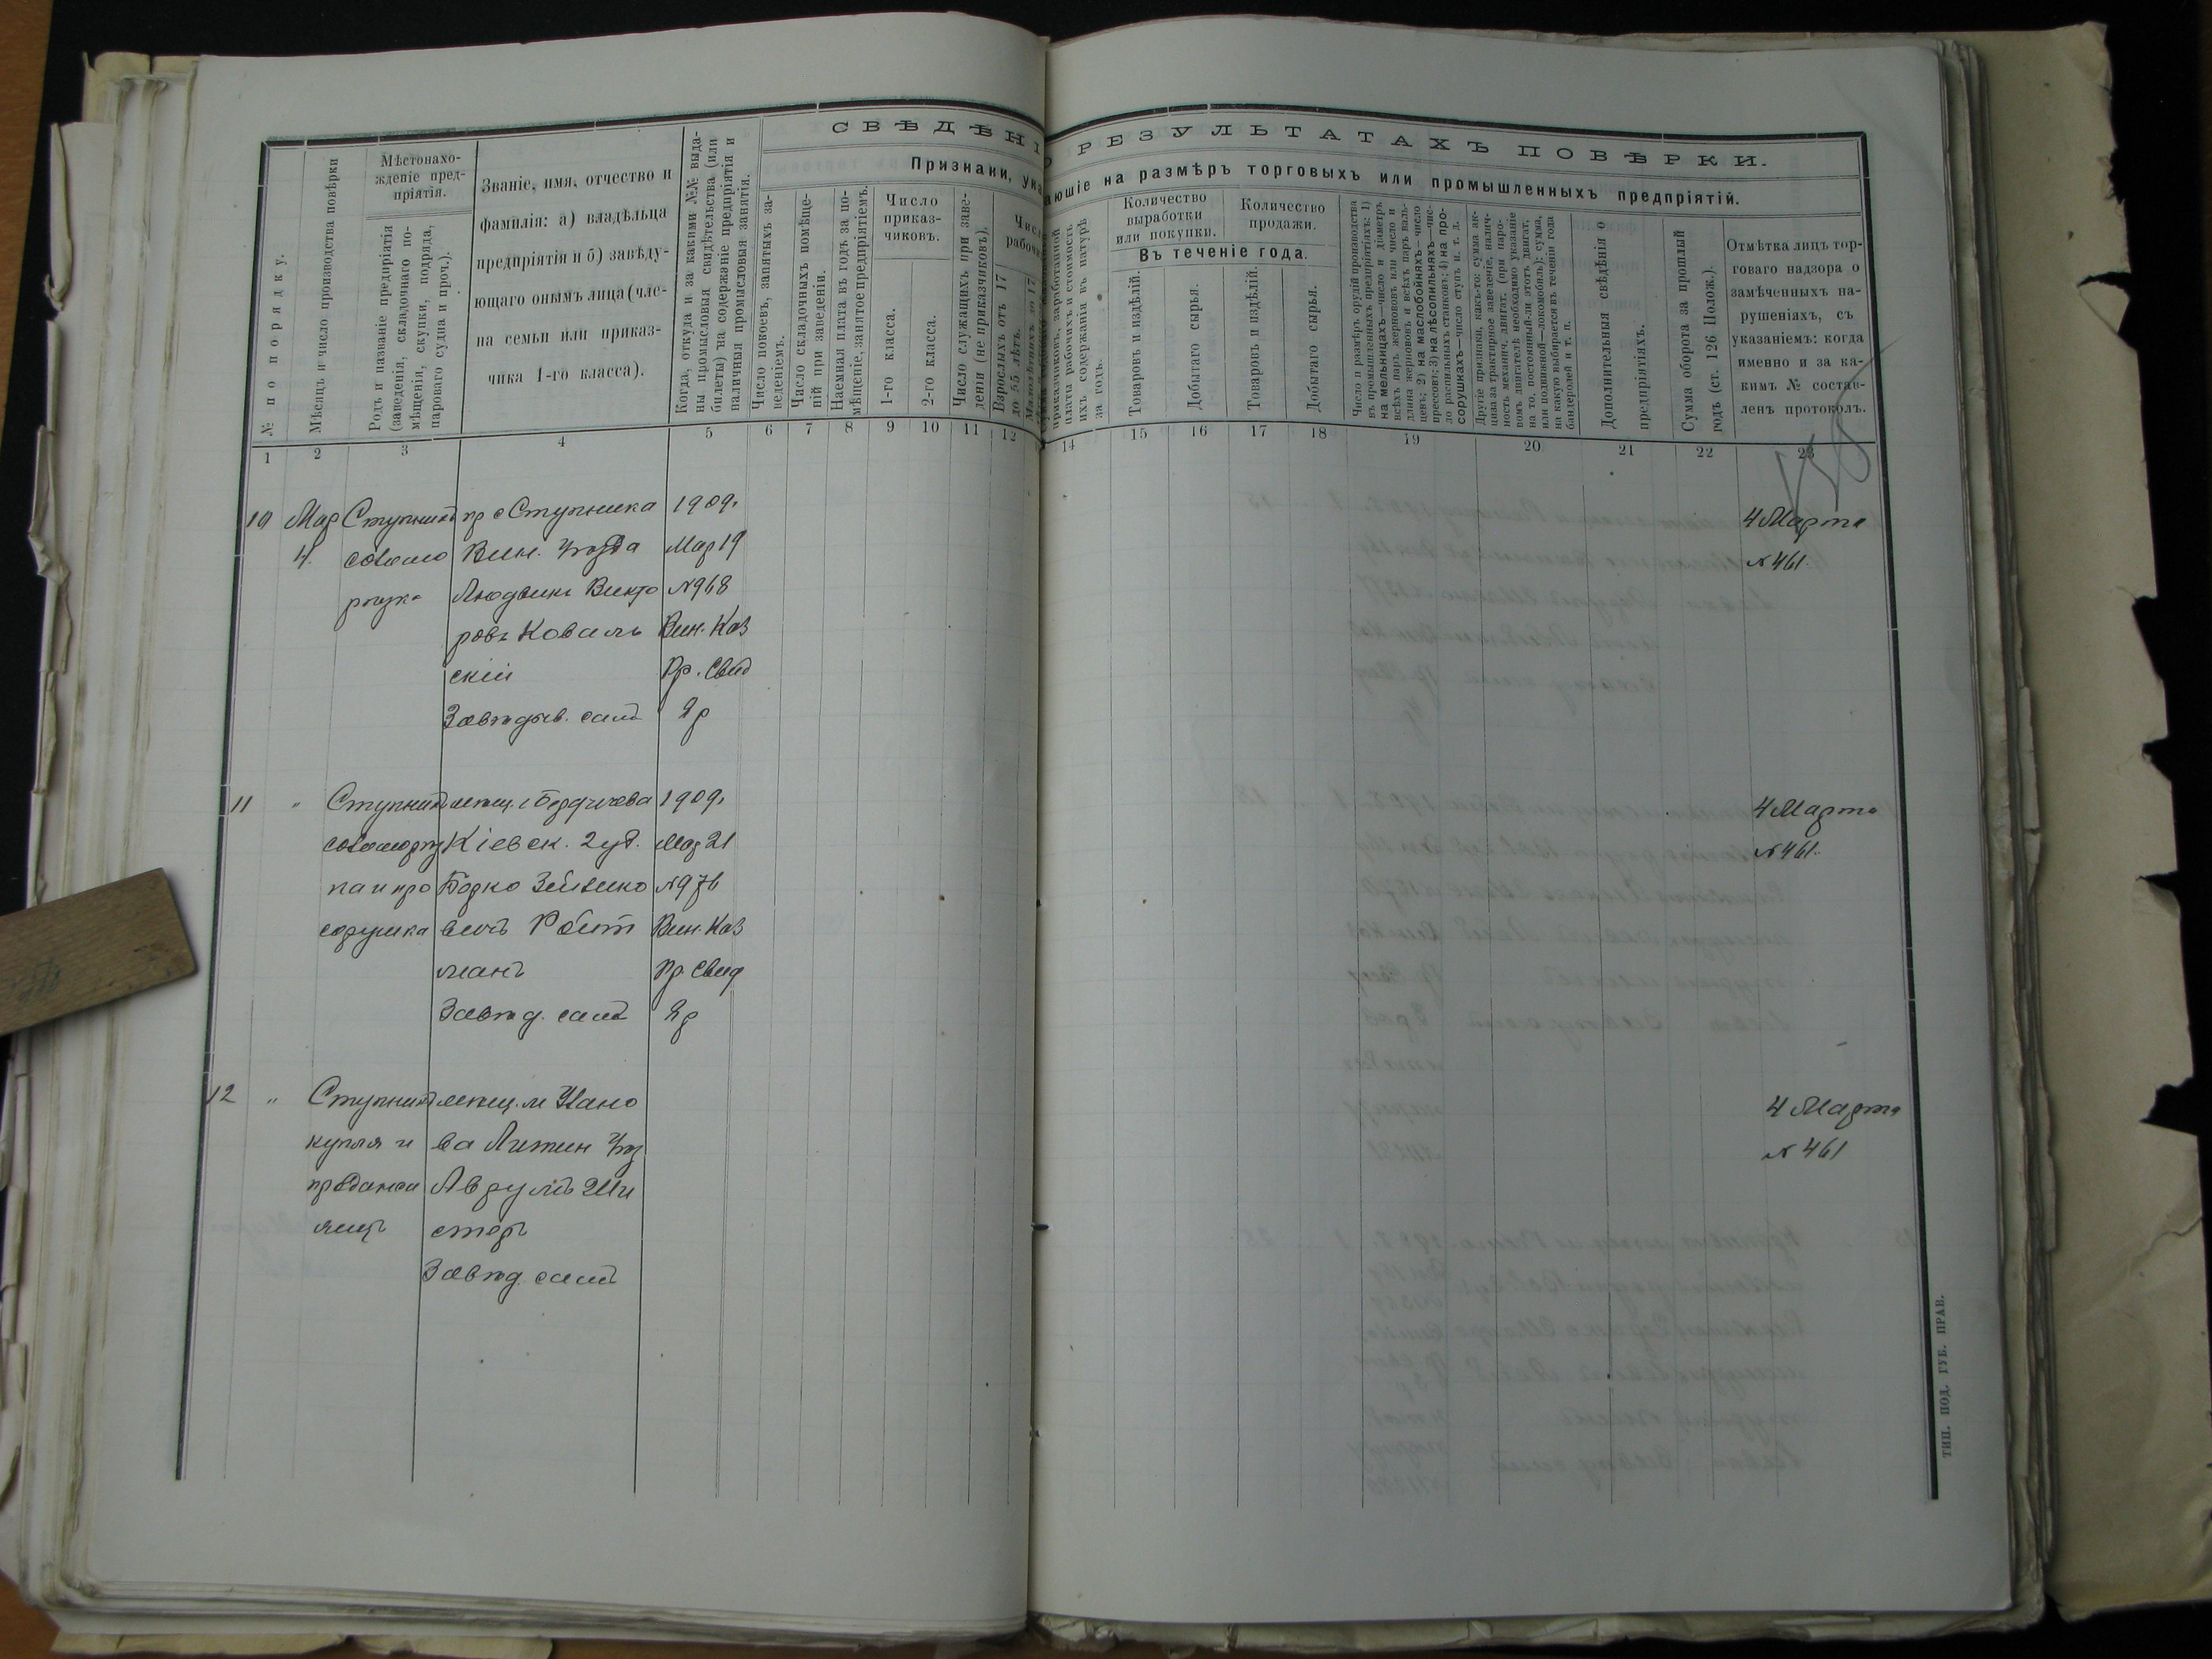 СВѢДѢНІ
О РЕЗУЛЬТАТАХЪ ПОВѢРКИ.
Признаки, ука
ающіе на размѣръ торговыхъ или промышленныхъ предпріятій.
№ по порядку.
Мѣсяцъ и число производства повѣрки
Мѣстонахо-
жденіе пред-
пріятія.
Родъ и названіе предпріятія
(заведенія, складочнаго по-
мѣщенія, скупки, подряда,
пароваго судна и проч.).
Званіе, имя, отчество и
фамилія: а) владѣльца
предпріятія и б) завѣду-
ющаго онымъ лица (чле-
на семьи или приказ-
чика 1-го класса).
Когда, откуда и за какими №№ выда-
ны промысловыя свидѣтельства (или
билеты) на содержаніе предпріятія и
наличныя промысловыя занятія.
Число покоевъ, занятыхъ за-
веденіемъ.
Число складочныхъ помѣще-
ній при заведеніи.
Наемная плата въ годъ за по-
мѣщеніе, занятое предпріятіемъ.
Число
приказ-
чиковъ.
1-го класса.
2-го класса.
Число служащихъ при заве-
деніи (не приказчиковъ).
Числ
рабочи
Взрослыхъ отъ 17
до 55 лѣтъ.
Малолѣтнихъ до 17
приказчиковъ, заработанной
платы рабочихъ и стоимость
ихъ содержанія въ натурѣ
за годъ.
Количество
выработки
или покупки.
Количество
продажи.
Въ теченіе года.
Товаровъ и издѣлій.
Добытаго сырья.
Товаровъ и издѣлій.
Добытаго сырья.
Число и размѣръ орудій производства
въ промышленныхъ предпріятіяхъ: 1)
на мельницахъ—число и діаметръ
всѣхъ паръ жернововъ или число и
длина жернововъ и всѣхъ паръ валь-
цевъ; 2) на маслобойняхъ—число
прессовъ; 3) на лѣсопильняхъ—чис-
ло распильныхъ станковъ; 4) на про-
сорушкахъ—число ступъ и т. д.
Другіе признаки, какъ-то: сумма ак-
циза за трактирное заведеніе, налич-
ность механич. двигат. (при паро-
вомъ двигателѣ необходимо указаніе
на то, постоянный-ли этотъ двигат.
или подвижной—локомобиль); сумма,
на какую выбирается въ теченіи года
бандеролей и т. п.
Дополнительныя свѣдѣнія о
предпріятіяхъ.
Сумма оборота за прошлый
годъ (ст. 126 Полож.).
Отмѣтка лицъ тор-
говаго надзора о
замѣченныхъ на-
рушеніяхъ, съ
указаніемъ: когда
именно и за ка-
кимъ № состав-
ленъ протоколъ.
1 2 3 4 5 6 7 8 9 10 11 12 14 15 16 17 18 19 20 21 22 23
10 Мар Ступникъ кр с Ступника 1909г 4 Марта
4. Вин. уѣзда Мар 19 № 461.
Людвикъ Викто № 968
ровъ Коваль Вин. Каз
скій Пр. Свид
Завѣдыв. самъ
11 " Ступникъ мѣщ. г Бердичева 1909г 4 Марта
Кіевск. губ. Мар 21 № 461.
па и про Борко Зейлико № 976
сорушка вичъ Ройт Вин. Каз
манъ Пр. Свид
Завѣд. самъ
12 " Ступникъ мѣщ. м Улано 4 Марта
купля и ва Литин уѣз № 461
продажа Аврумъ Ши
яицъ стеръ
Завѣд. самъ
ТИП. ПОД. ГУБ. ПРАВ.